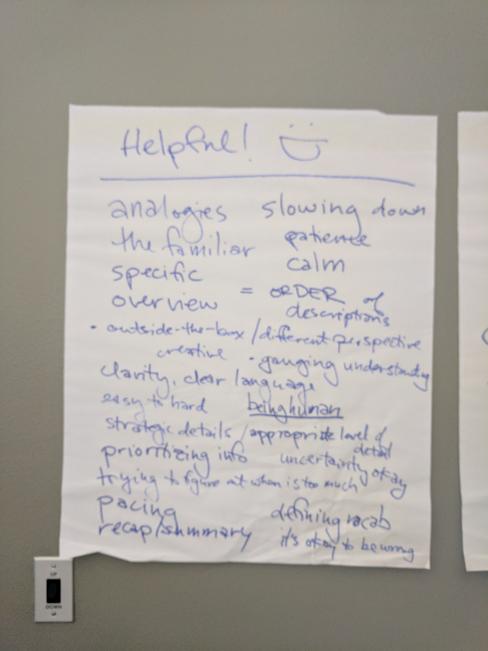 Helpful!
analogies slowing down
the familiar patience
specific calm
overview = ORDER of
descriptions
• outside-the-box / different perspective
creative • gauging understanding
clarity, clear language
easy to hard being human
strategic details / appropriate level of
detail
prioritizing info uncertainty okay
trying to figure out when is too much
pacing defining vocab
recap/summary it's okay to be wrong
UP
DOWN